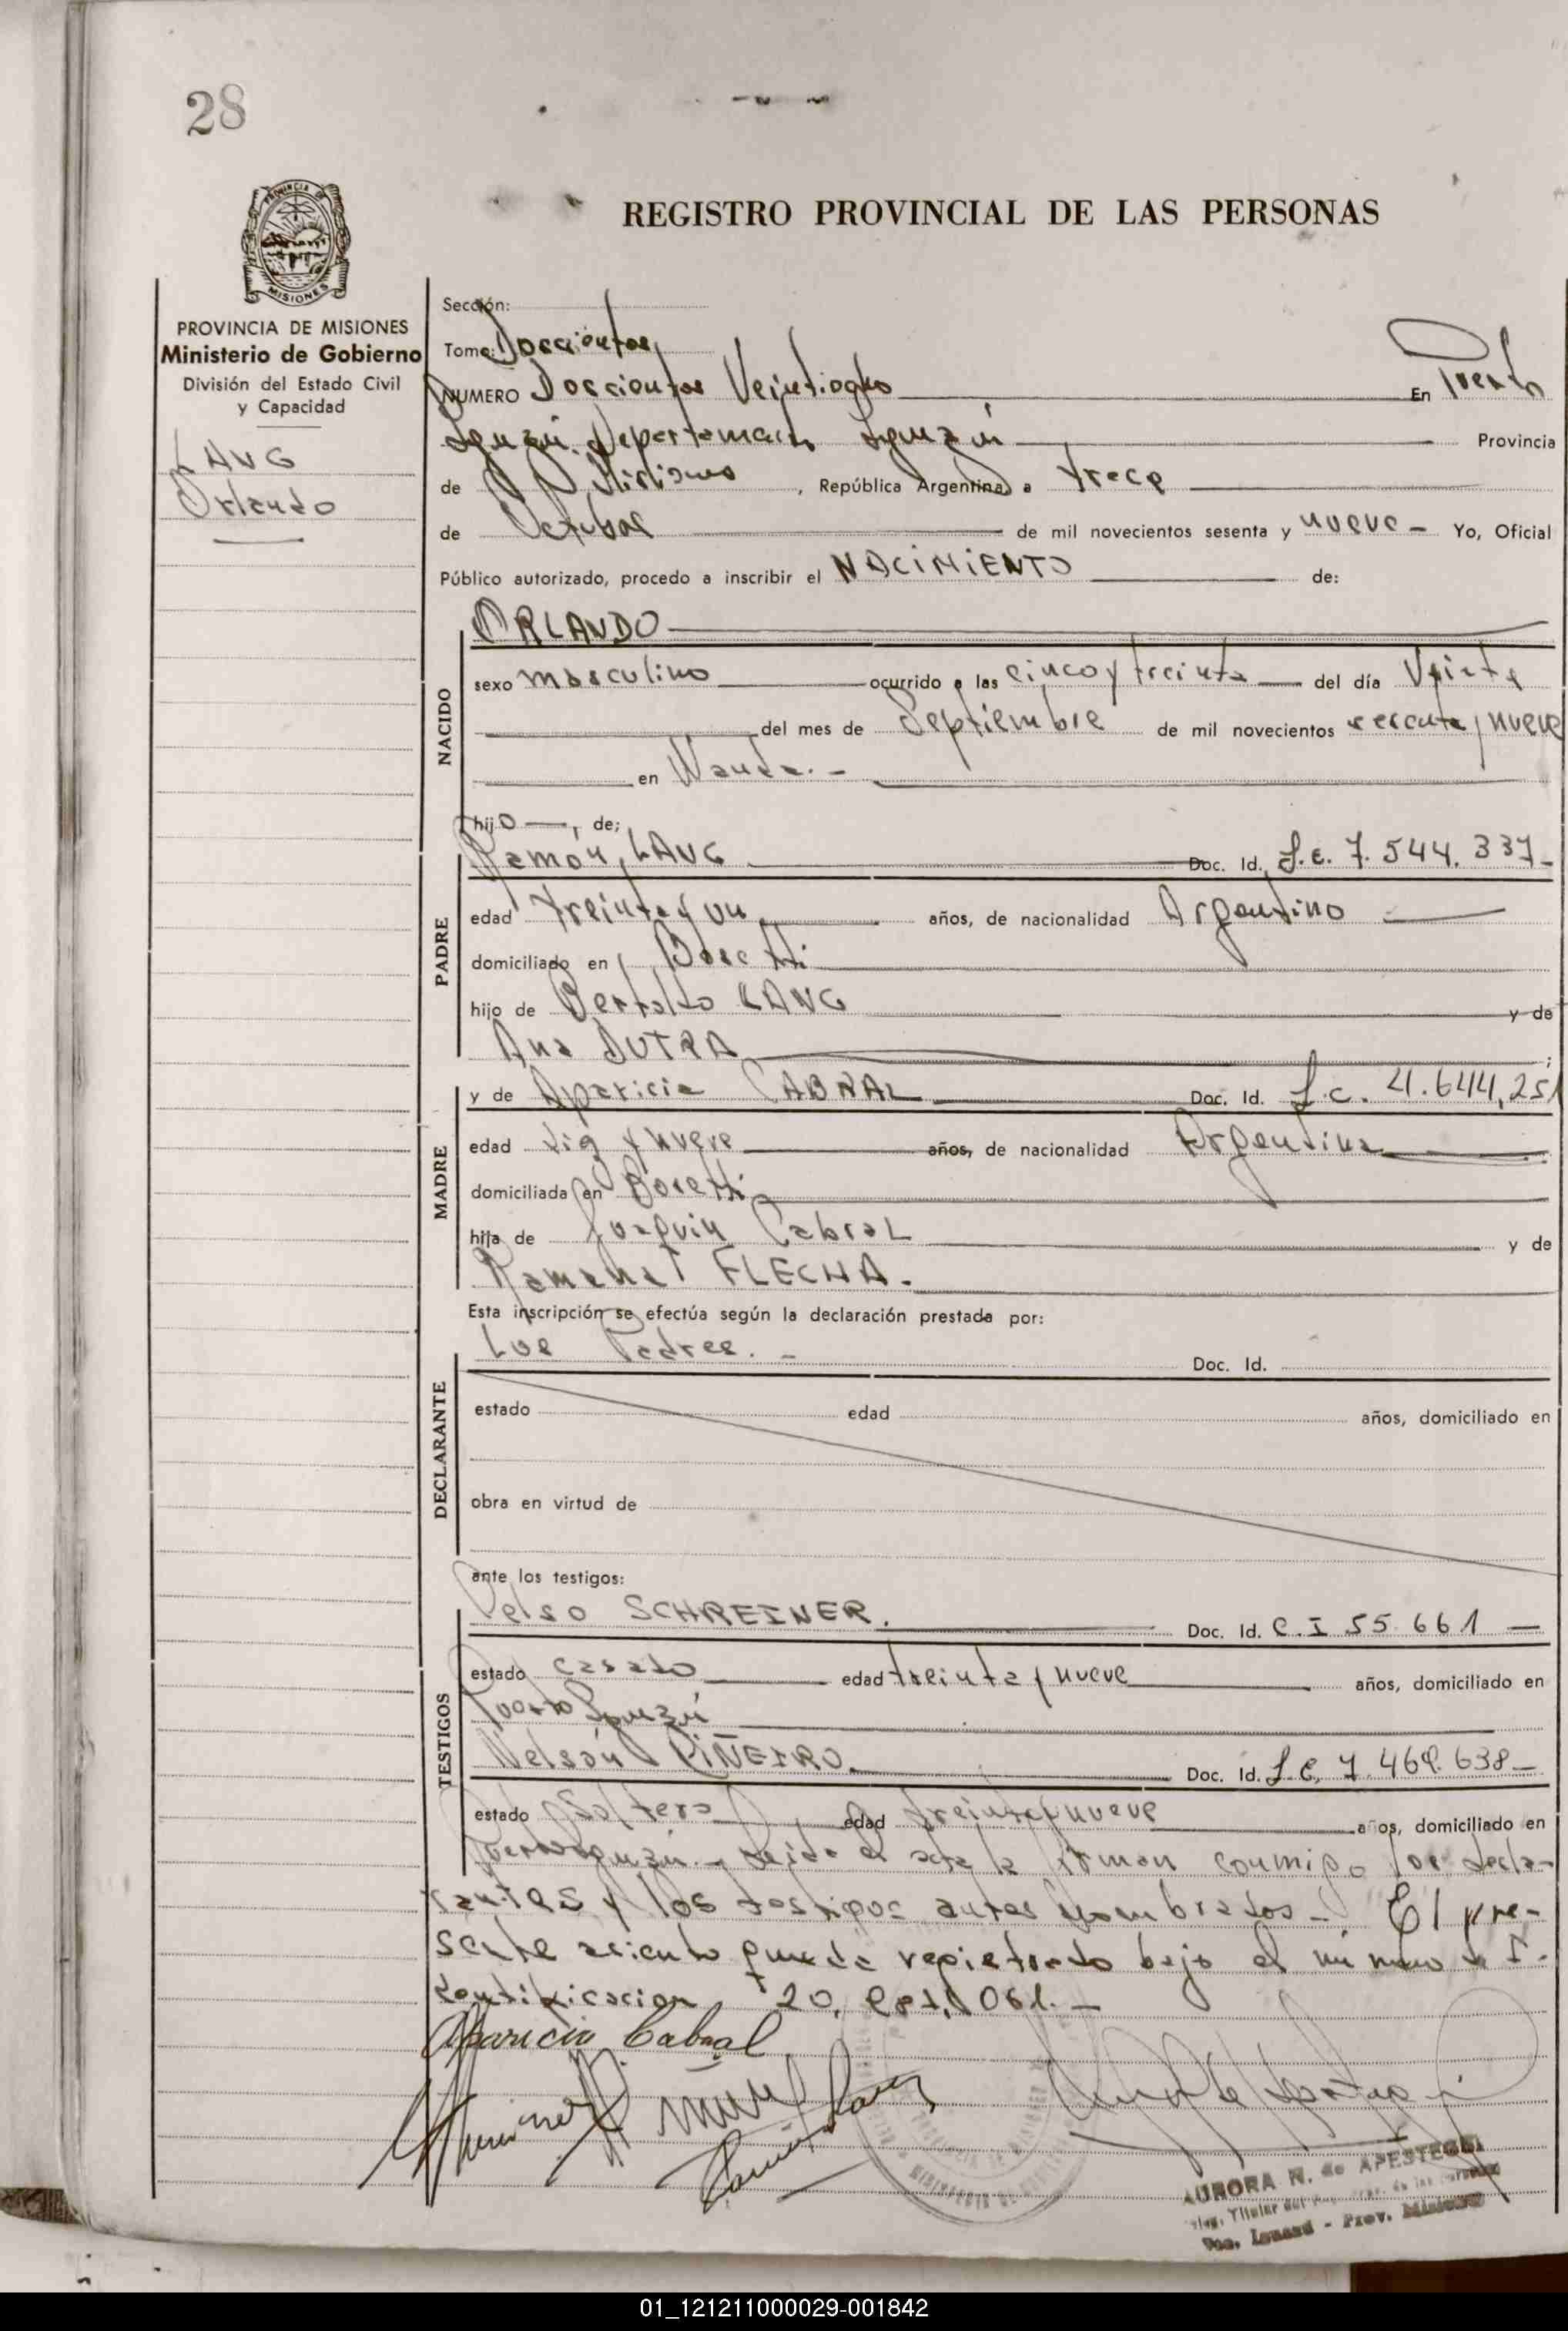 28
REGISTRO PROVINCIAL DE LAS PERSONAS
PROVINCIA DE MISIONES
Ministerio de Gobierno
División del Estado Civil
y Capacidad
LANG
Orlando
Sección:
Tomo: Doscientos
NUMERO Doscientos Veintiocho En Puerto
Iguazú Departamento Iguazú Provincia
de Misiones, República Argentina a trece
de Octubre de mil novecientos sesenta y nueve - Yo, Oficial
Público autorizado, procedo a inscribir el NACIMIENTO de:
NACIDO
ORLANDO
sexo masculino ocurrido a las cinco y treinta del día Veinte
del mes de Septiembre de mil novecientos sesenta y nueve
en Wanda.-
hijo, de;
PADRE
Ramon, LANG Doc. Id. L.E. 7.544.337-
edad treinta y un años, de nacionalidad Argentino
domiciliado en Bosetti
hijo de Bertoldo LANG y de
Ana DUTRA ;
MADRE
y de Aparicia CABRAL Doc. Id. L.C. 4.644,251
edad diez y nueve años, de nacionalidad Argentina
domiciliada en Bosetti
hija de Joaquin Cabral y de
Ramona FLECHA.
Esta inscripción se efectúa según la declaración prestada por:
DECLARANTE
Los Padres.- Doc. Id.
estado edad años, domiciliado en
obra en virtud de
ante los testigos:
TESTIGOS
Celso SCHREINER. Doc. Id. C.I 55.661
estado casado edad treinta y nueve años, domiciliado en
Puerto Iguazú
Nelson PIÑEIRO. Doc. Id. L.E. 7.468.638-
estado Soltero edad treinta y nueve años, domiciliado en
Puerto Iguazú.- Leida el acta la firman conmigo los decla-
rantes y los testigos antes nombrados.- El pre-
sente asiento queda registrado bajo el número de I-
dentificacion 20.
Aparicia Cabral
AURORA N. de APESTEGUI
Titular del
Misiones
01_121211000029-001842